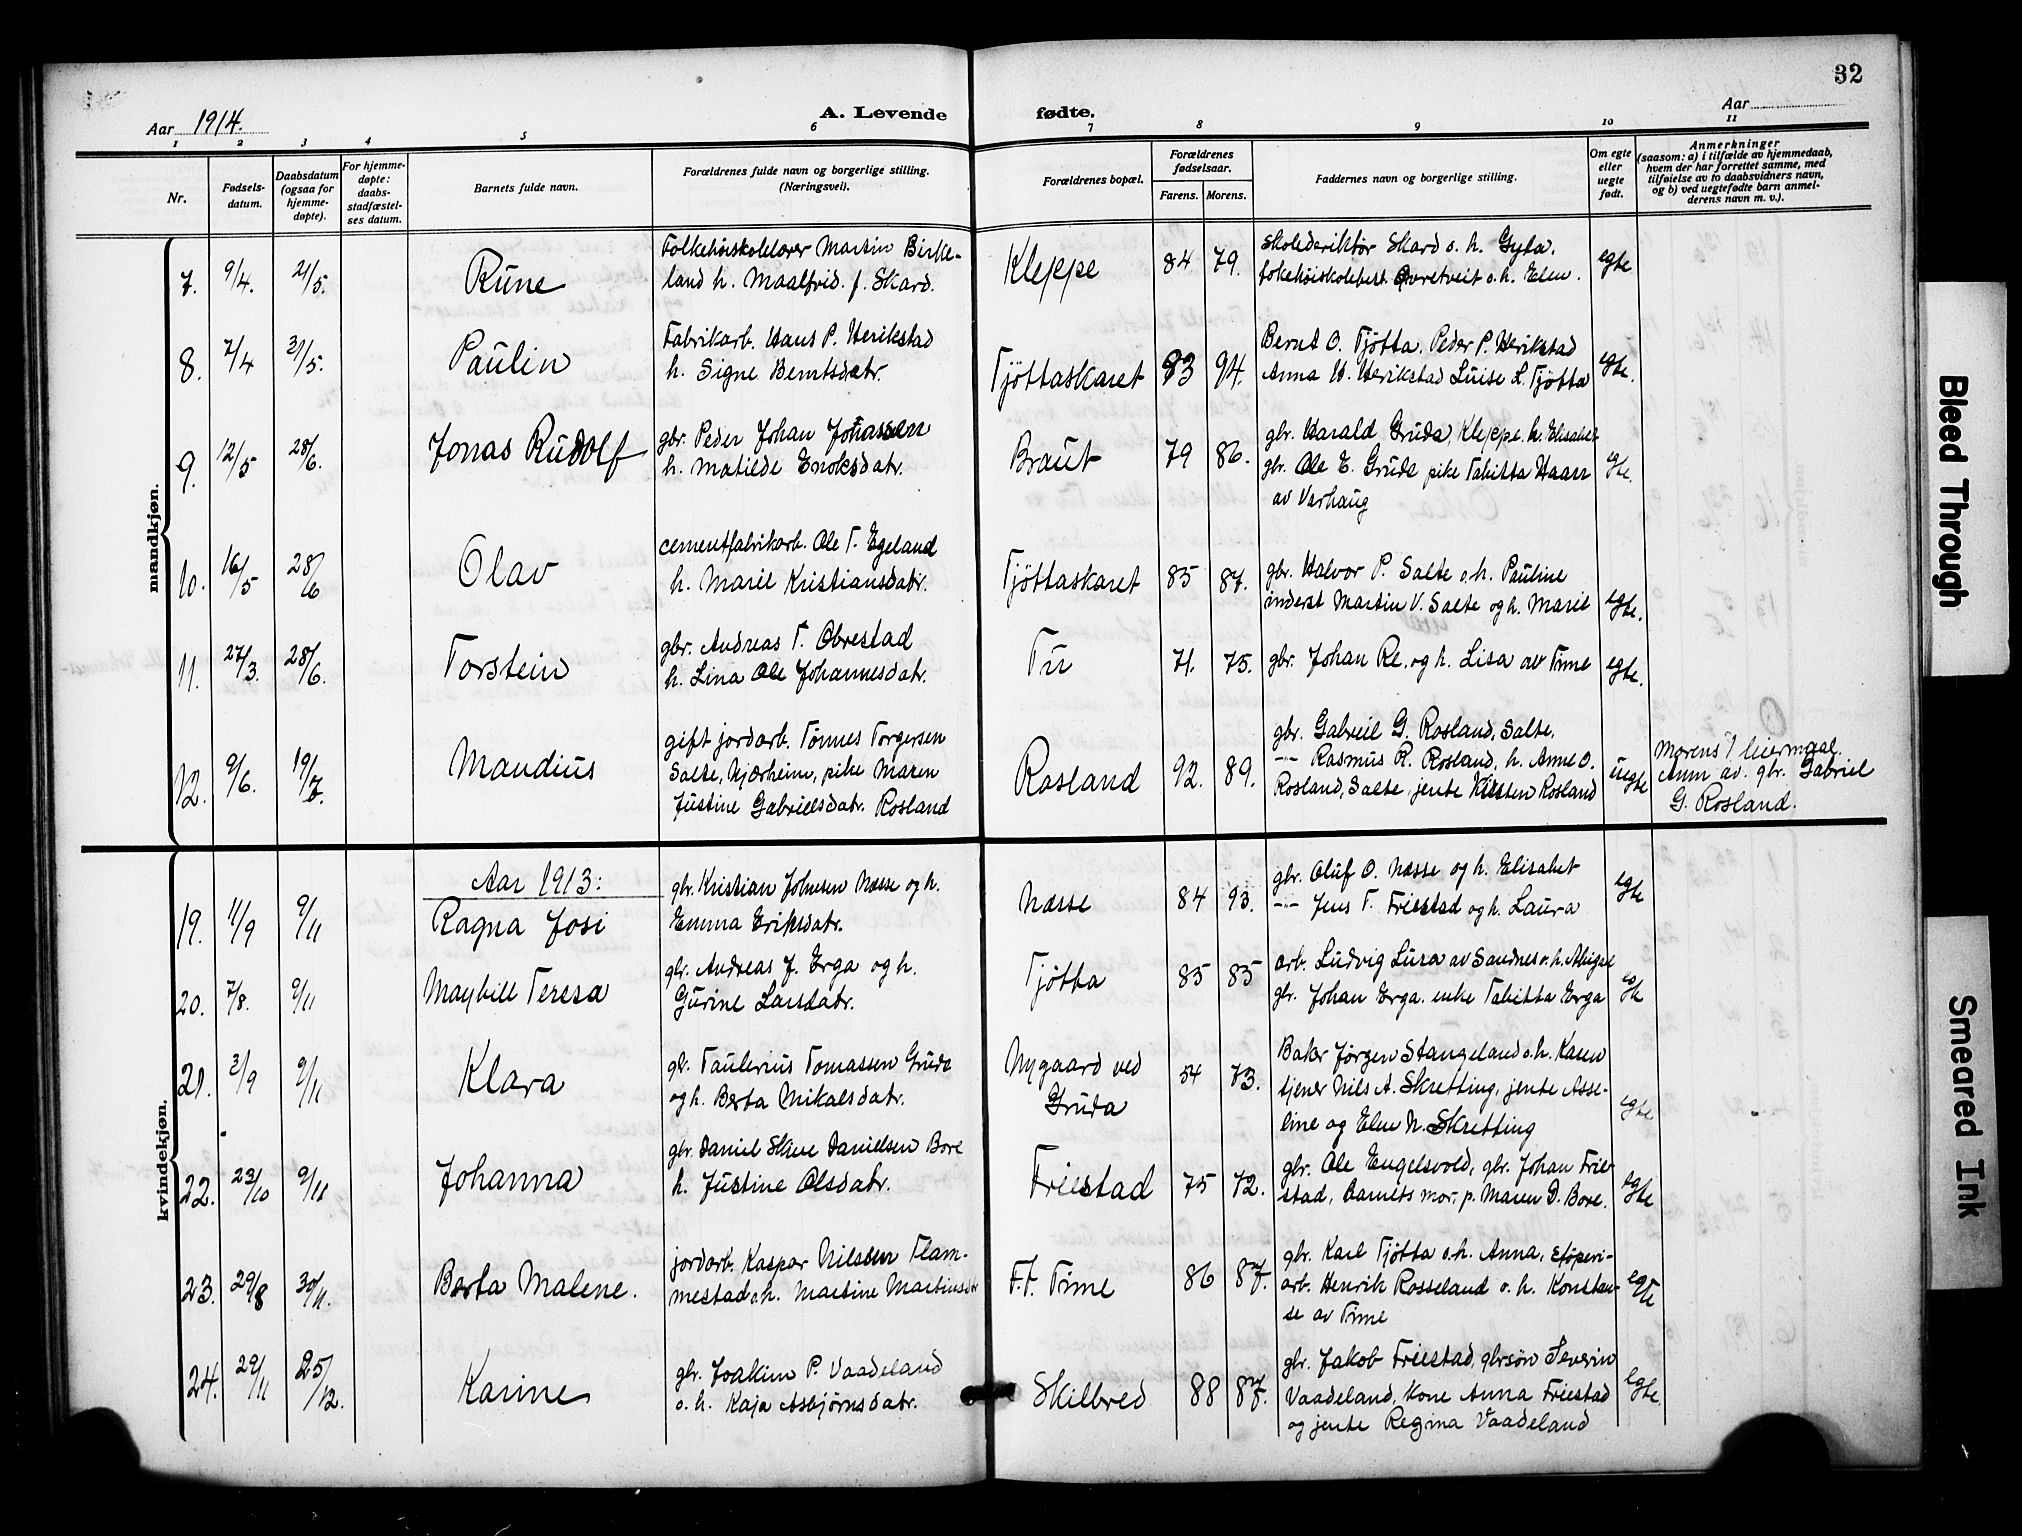 32
Aar 1914.
A. Levende fødte.
Aar
1 2 3 4 5 6 7 8 9 10 11
Nr.
Fødsels-
datum.
Daabsdatum
(ogsaa for
hjemme-
døpte).
For hjemme-
døpte:
daabs-
stadfæstel-
ses datum.
Barnets fulde navn.
Forældrenes fulde navn og borgerlige stilling.
(Næringsvei).
Forældrenes bopæl.
Forældrenes
fødselsaar.
Farens. Morens.
Faddernes navn og borgerlige stilling.
Om egte
eller
uegte
født.
Anmerkninger
(saasom: a) i tilfælde av hjemmedaab,
hvem der har forrettet samme, med
tilføielse av to daabsvidners navn,
og b) ved uegtefødte barn anmel-
derens navn m. v.).
mandkjøn.
7. 9/4. 21/5. Rune
Folkehøiskolelærer Martin Birke-
land h. Maalfrid f. Skard.
Kleppe 84. 79.
Skoledirektør Skard o. h. Gyda.
h. Elen.
egte
8. 7/4 31/5. Paulin
Fabrikarb. Hans P. Herikstad
h. Signe Berntsdatr.
Tjöttaskaret 83 94.
Bernt O. Tjøtta. Peder P. Herikstad
Anna H. Herikstad Luise L. Tjøtta
egte.
9. 12/5 28/6. Jonas Rudolf
gbr. Peder Johan Johassen
h. Matilde Enoksdatr.
Braut 79 86.
gbr. Harald Gruda, Kleppe. h. Elisabet
gbr. Ole E. Grude pike Tabitta Haar
av Varhaug
egte.
10. 16/5 28/6 Olav
cementfabrikarb. Ole T. Egeland
h. Marie Kristiansdatr.
Tjöttaskaret 85 87.
gbr. Halvor P. Salte o. h. Pauline
inderst Martin V. Salte og h. Marie
egte.
11. 27/3. 28/6. Torstein
gbr. Andreas T. Obrestad
h. Lina Ole Johannesdatr.
Tu 71. 75.
gbr. Johan Re. og h. Lisa av Time
egte.
12. 9/6. 19/7. Mandius
gift jordarb. Tønnes Torgersen
Salte, Njærheim, pike Maren
Justine Gabrielsdatr. Rosland
Rosland 92. 89.
gbr. Gabriel G. Rosland, Salte.
-"- Rasmus R. Rosland, h. Anne O.
Rosland, Salte, jente Kirsten Rosland
uegte
Morens 1 leiermaal.
Anm av. gbr. Gabriel
G. Rosland.
kvindekjøn.
Aar 1913:
19. 11/9 9/11 Ragna Josi
gbr. Kristian Johnsen Næsse og h.
Emma Eriksdatr.
Næsse 84 93.
gbr. Oluf O. Næsse og h. Elisabet
-"- Jens T. Friestad og h. Laura
egte
20. 7/8. 9/11 Maybill Teresa
gbr. Andreas J. Erga og h.
Gurine Larsdatr.
Tjøtta 85 85
arb. Ludvig Lura av Sandnes o. h. Abigal
gbr. Johan Erga. enke Tabitta Erga
egte
21. 3/9 9/11 Klara
gbr. Taulerius Tomassen Grude
og h. Berta Mikalsdatr.
Nygaard ved
Gruda
54 73.
Baker Jørgen Stangeland o. h. Karen
tjener Nils A. Skretting, jente Asse-
line og Elen N. Skretting
egte
22. 23/10 9/11 Johanna
gbr. Daniel Skeie Danielsen Bore
h. Justine Olsdatr.
Friestad 75 72.
gbr. Ole Engelsvold, gbr. Johan Frie-
stad, barnets mor. p. Maren D. Bore.
egte
23. 29/8 30/11. Berta Malene.
jordarb. Kaspar Nilssen Flam-
mestad o. h. Martine Martinsdtr
F. t. Time 86 87.
gbr. Karl Tjötta o. h. Anna, støperi-
arb. Henrik Rosseland o. h. Konstan-
se av Time
egte
24. 29/11 25/12. Karine
gbr. Joakim P. Vaadeland
o. h. Kaja Asbjørnsdatr.
Skilbred 88 87.
gbr. Jakob Friestad, gbrsøn Severin
Vaadeland, kone Anna Friestad
og jente Regina Vaadeland
egte.
Bleed Through
Smeared Ink